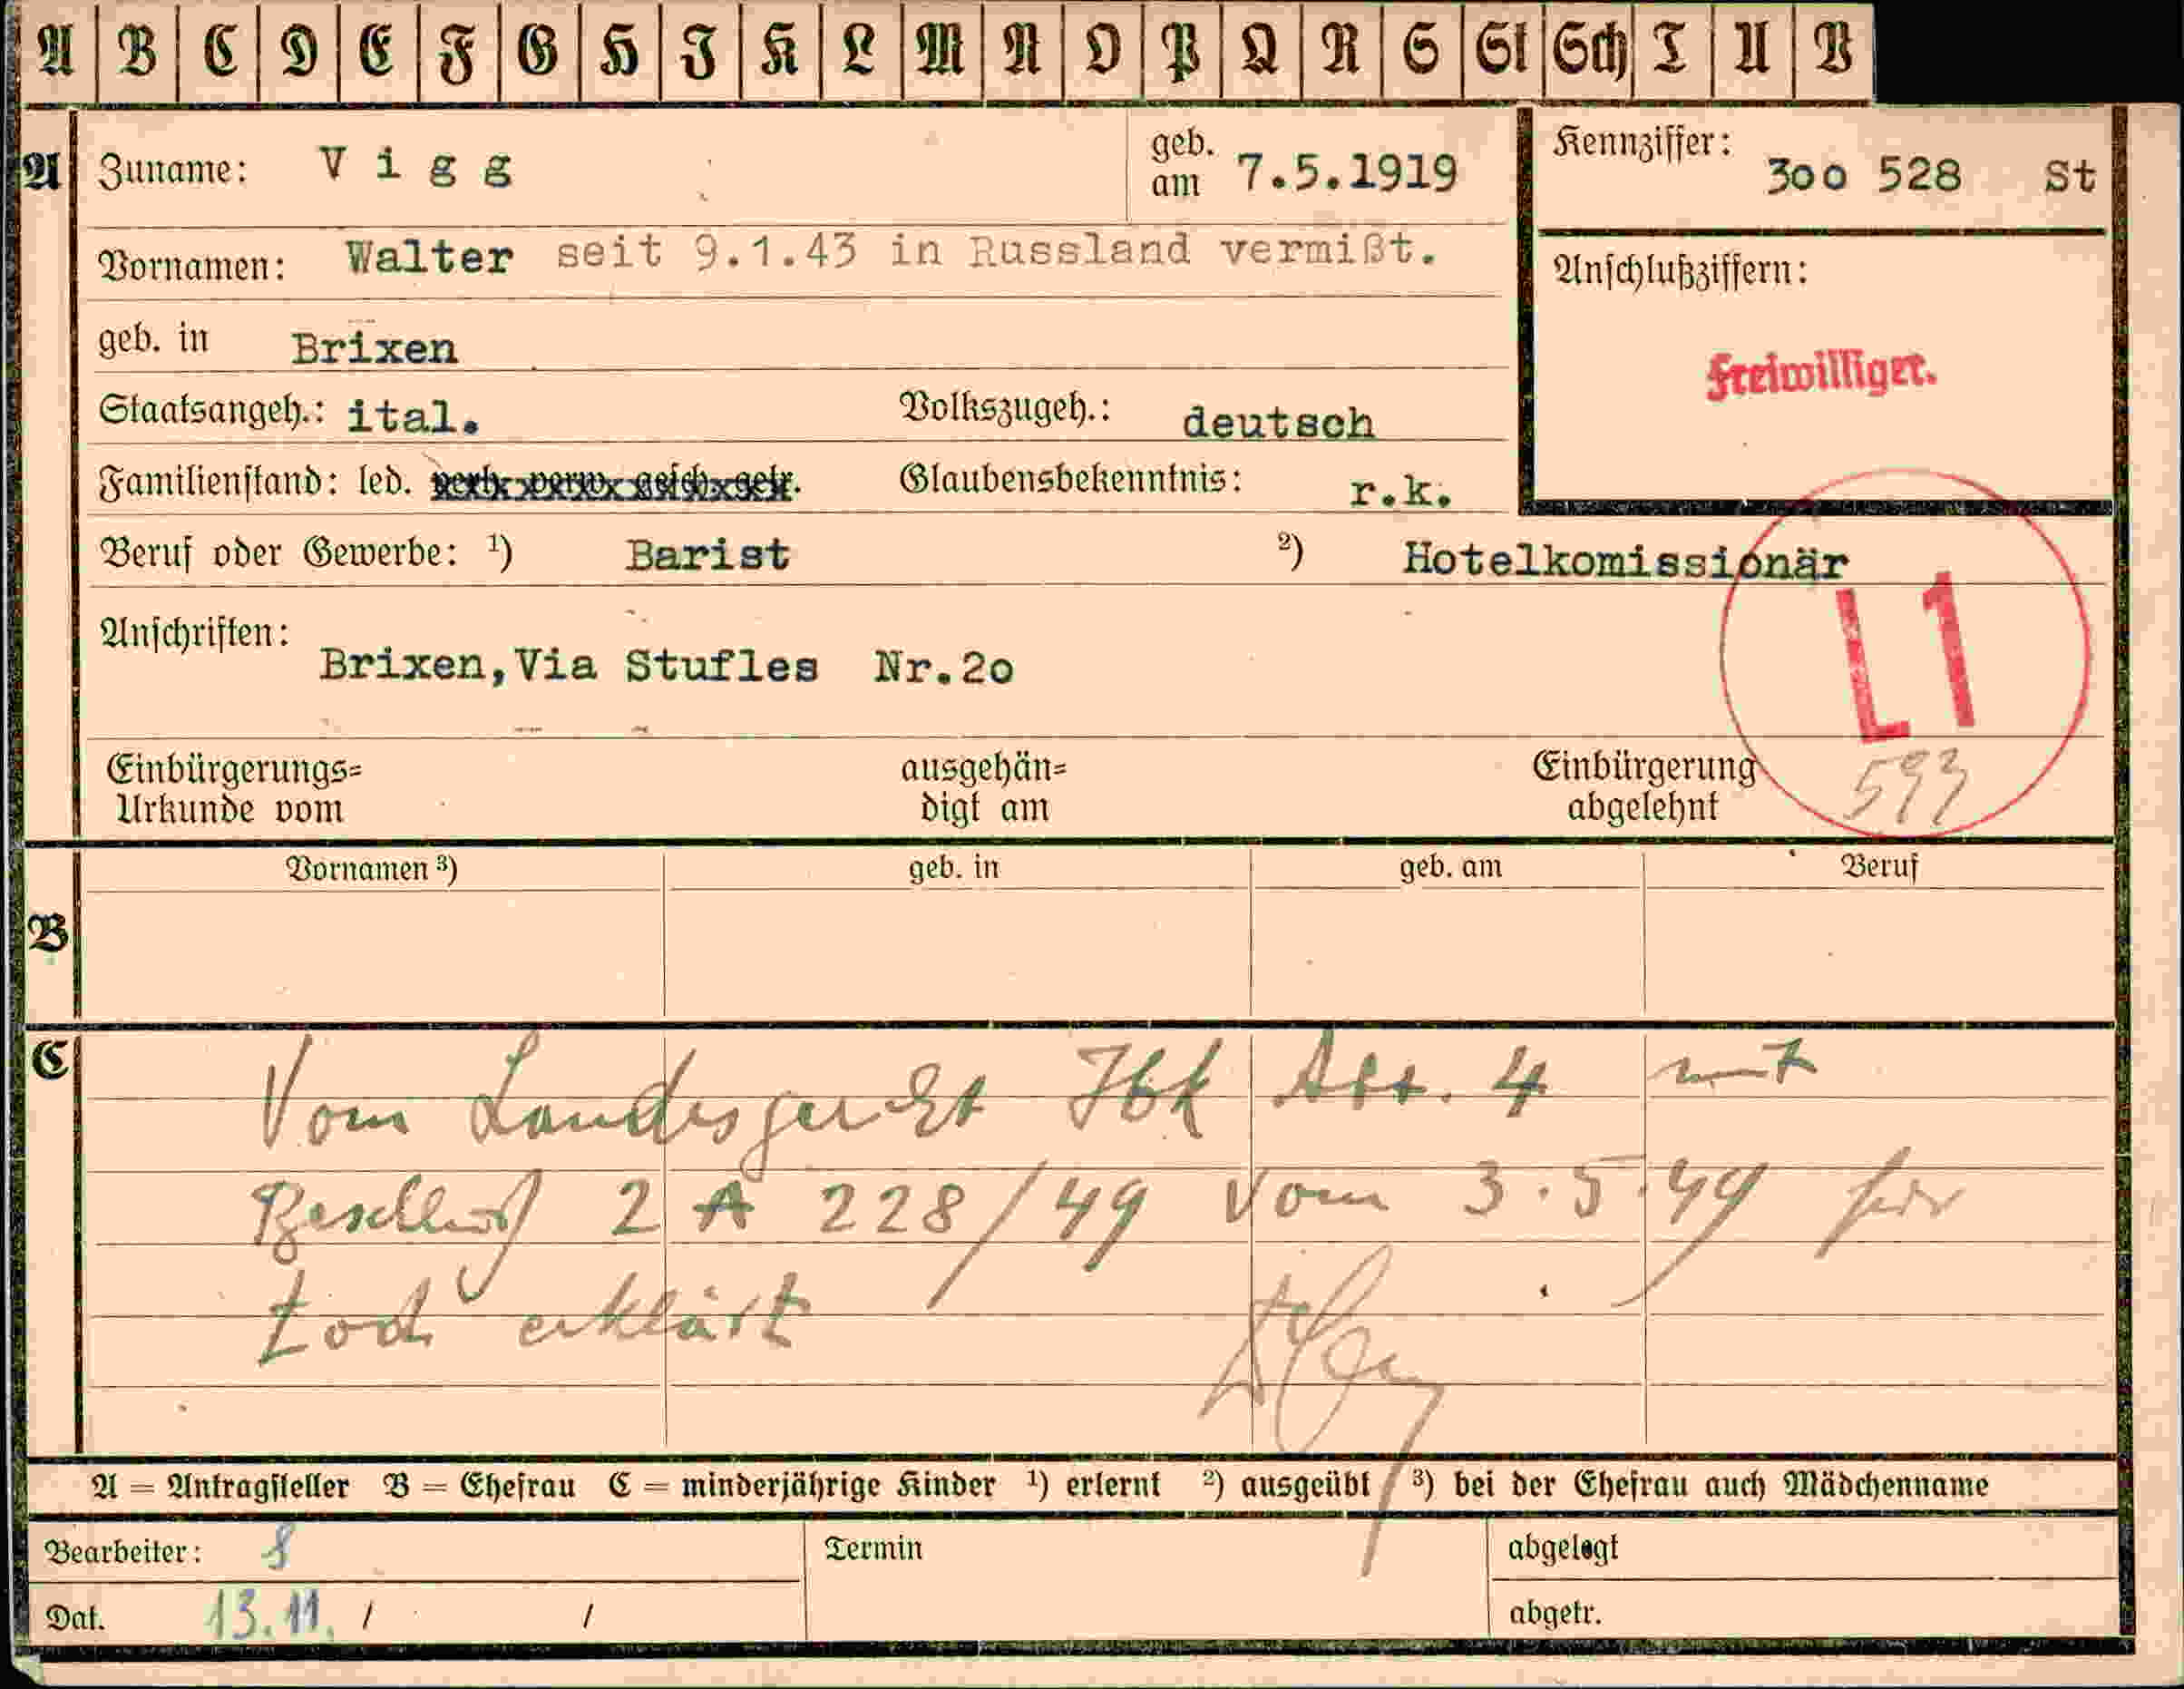 A B C D E F G H J K L M N O P Q R S St Sch T U V
A Zuname: Vigg geb. am 7.5.1919 Kennziffer: 3oo 528 St
Vornamen: Walter seit 9.1.43 in Russland vermißt. Anschlußziffern:
geb. in Brixen
Freiwilliger.
Staatsangeh.: ital. Volkszugeh.: deutsch
Familienstand: led. verh. verw. gesch. getr. Glaubensbekenntnis: r.k.
Beruf oder Gewerbe: ¹) Barist ²) Hotelkomissionär
L1
Anschriften: Brixen,Via Stufles Nr.2o
Einbürgerungs= ausgehän= Einbürgerung 593
Urkunde vom digt am abgelehnt
Vornamen ³) geb. in geb. am Beruf
B
C Vom Landesgericht Ibk Abt. 4 mit
Beschluß 2 A 228/49 vom 3.5.49 für
tod erklärt
A = Antragsteller B = Ehefrau C = minderjährige Kinder ¹) erlernt ²) ausgeübt ³) bei der Ehefrau auch Mädchenname
Bearbeiter: 8 Termin abgelegt
Dat. 13.11. / / abgetr.